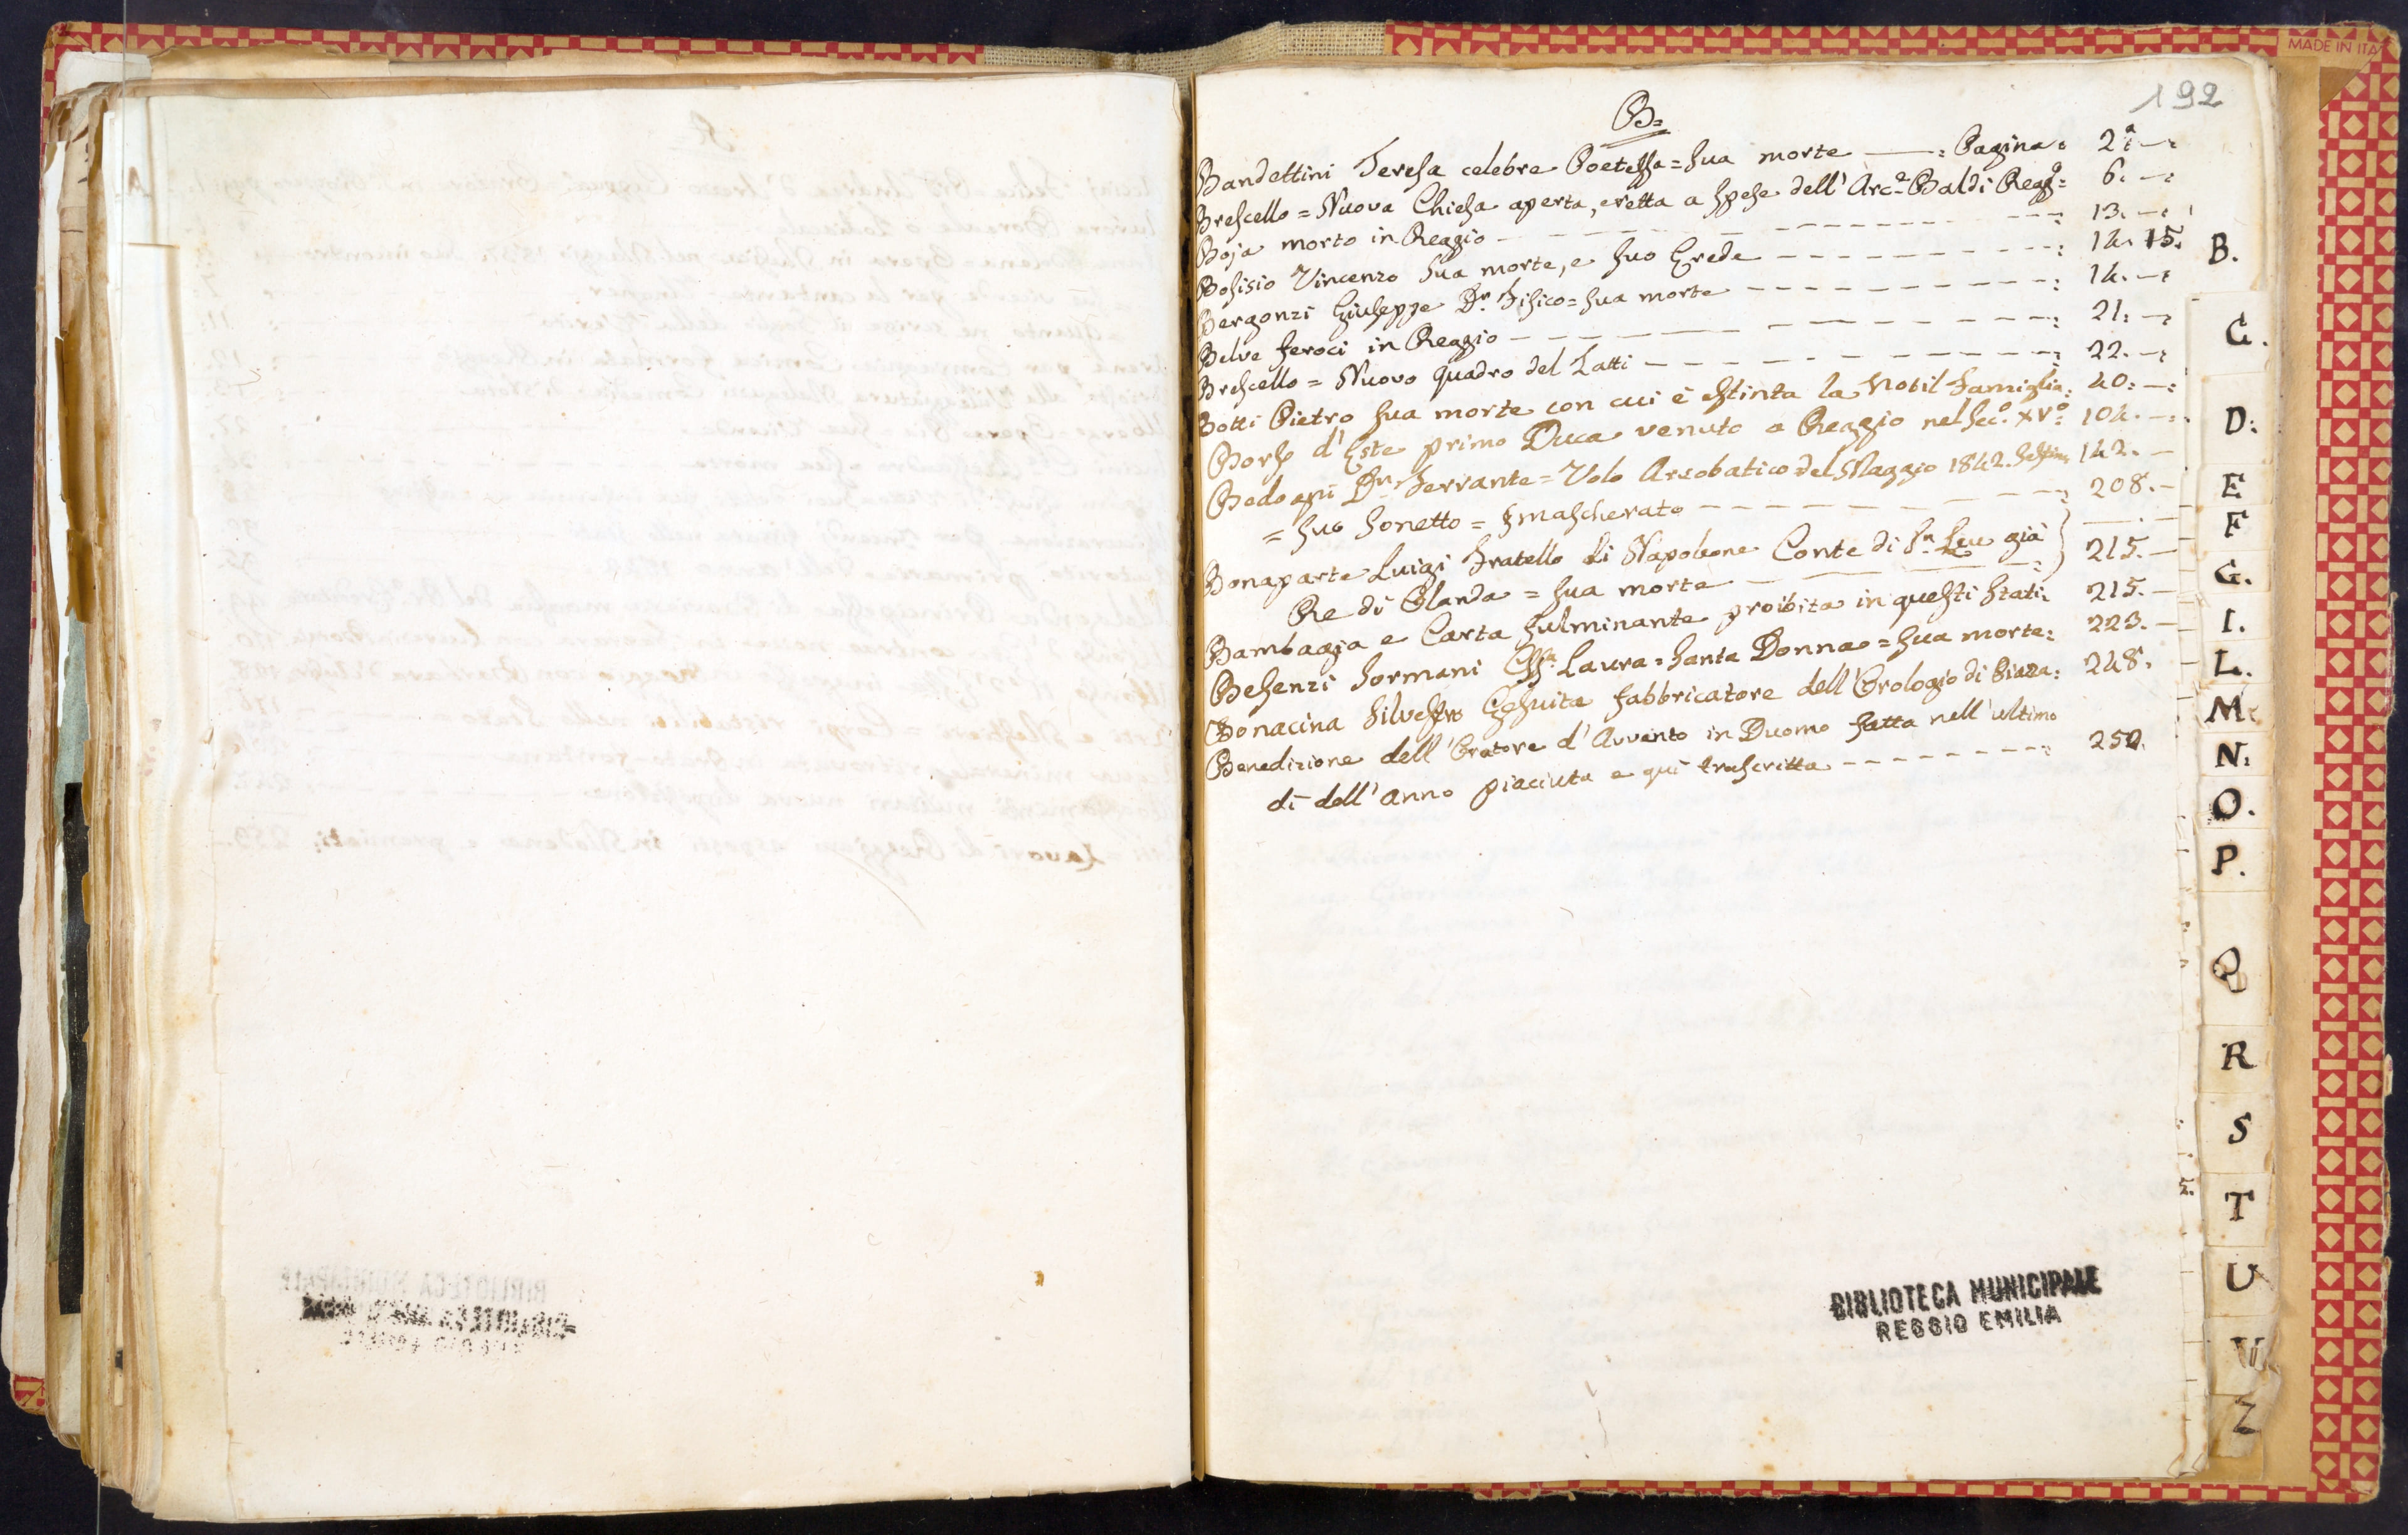 MADE IN ITA
192
B=
Bandettini Teresa celebre Poetessa = Sua morte —: Pagina: 2.ª —:
Brescello = Nuova Chiesa aperta, eretta a spese dell' Arc.ᵉ Baldi Regg.º = 6. —:
Boja morto in Reggio — — — — — — — —: 13. —:
Bosisio Vincenzo Sua morte, e suo Erede — — — — — —: 14. 15.
Bergonzi Giuseppe D.r Fisico = Sua morte — — — — — —: 14. —:
Belve feroci in Reggio — — — — — — — — —: 21: —:
Brescello = Nuovo quadro del Zatti — — — — — — —: 22. —:
Botti Pietro sua morte con cui è estinta la Nobil Famiglia: 40: —:
Borso d'Este primo Duca venuto a Reggio nel Sec.º XV.º: 104. —:
Bedogni D.n Ferrante = Volo Areobatico del Maggio 1842. 142. —
= Suo Sonetto = smascherato — — — — — — —: 208. —
Bonaparte Luigi Fratello di Napoleone Conte di S.n Leu già
Re di Olanda = Sua morte — — — — — —: 215. —
Bambagia e Carta fulminante proibita in questi Stati: 215. —
Besenzi Sormani Css.ª Laura = Santa Donna = Sua morte: 223. —
Bonacina Silvestro Gesuita fabbricatore dell'Orologio di Piazza: 248. —
Benedizione dell'Oratore d'Avvento in Duomo fatta nell'ultimo
dì dell'anno piaciuta e qui trascritta — — — — — —: 250.
B.
C.
D.
E
F
G.
I.
L.
M.
N.
O.
P.
Q
R
S
T
U
V
Z
BIBLIOTECA MUNICIPALE
REGGIO EMILIA